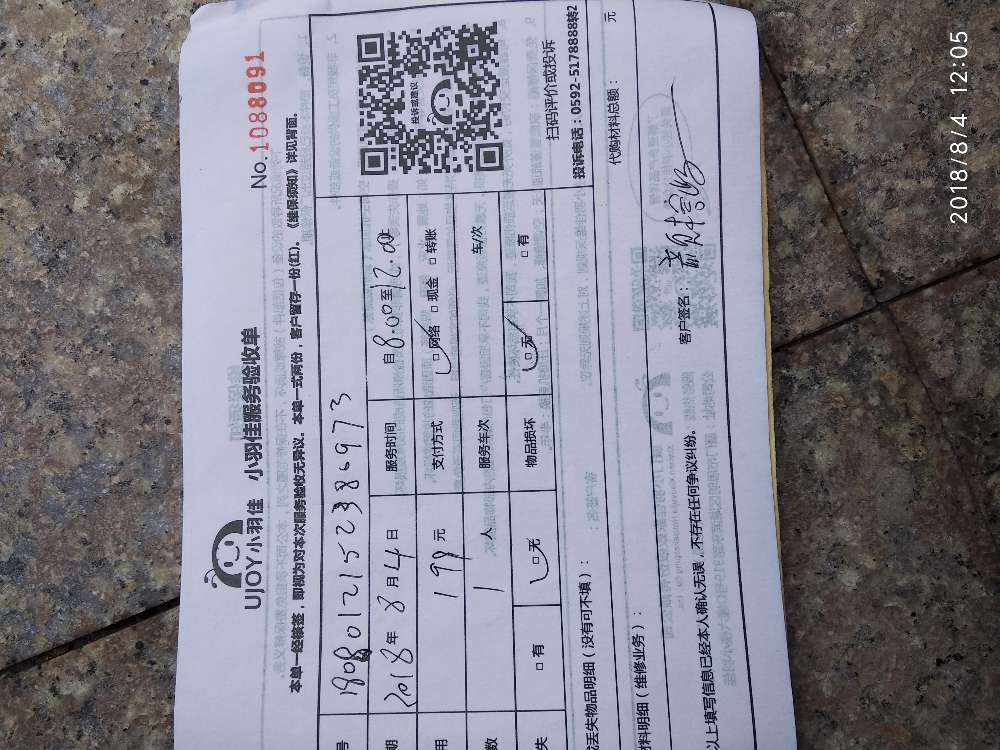 No.1088091
UJOY小羽佳 小羽佳服务验收单
本单一经核签，即视为对本次服务验收无异议。本单一式两份，客户留存一份(红)。《维保须知》详见背面。
号 1808012152386973
期 2018年8月4日 服务时间 自8.00至12.00
用 199元 支付方式 □网络 □现金 □转账
数 1人 服务车次 1 车/次
失 □有 □无 物品损坏 □无 □有
投诉或建议
扫码评价或投诉
投诉电话：0592-5178888转2
或丢失物品明细（没有可不填）：
材料明细（维修业务）： 代购材料总额： 元
以上填写信息已经本人确认无误，不存在任何争议纠纷。 客户签名：
2018/8/4 12:05